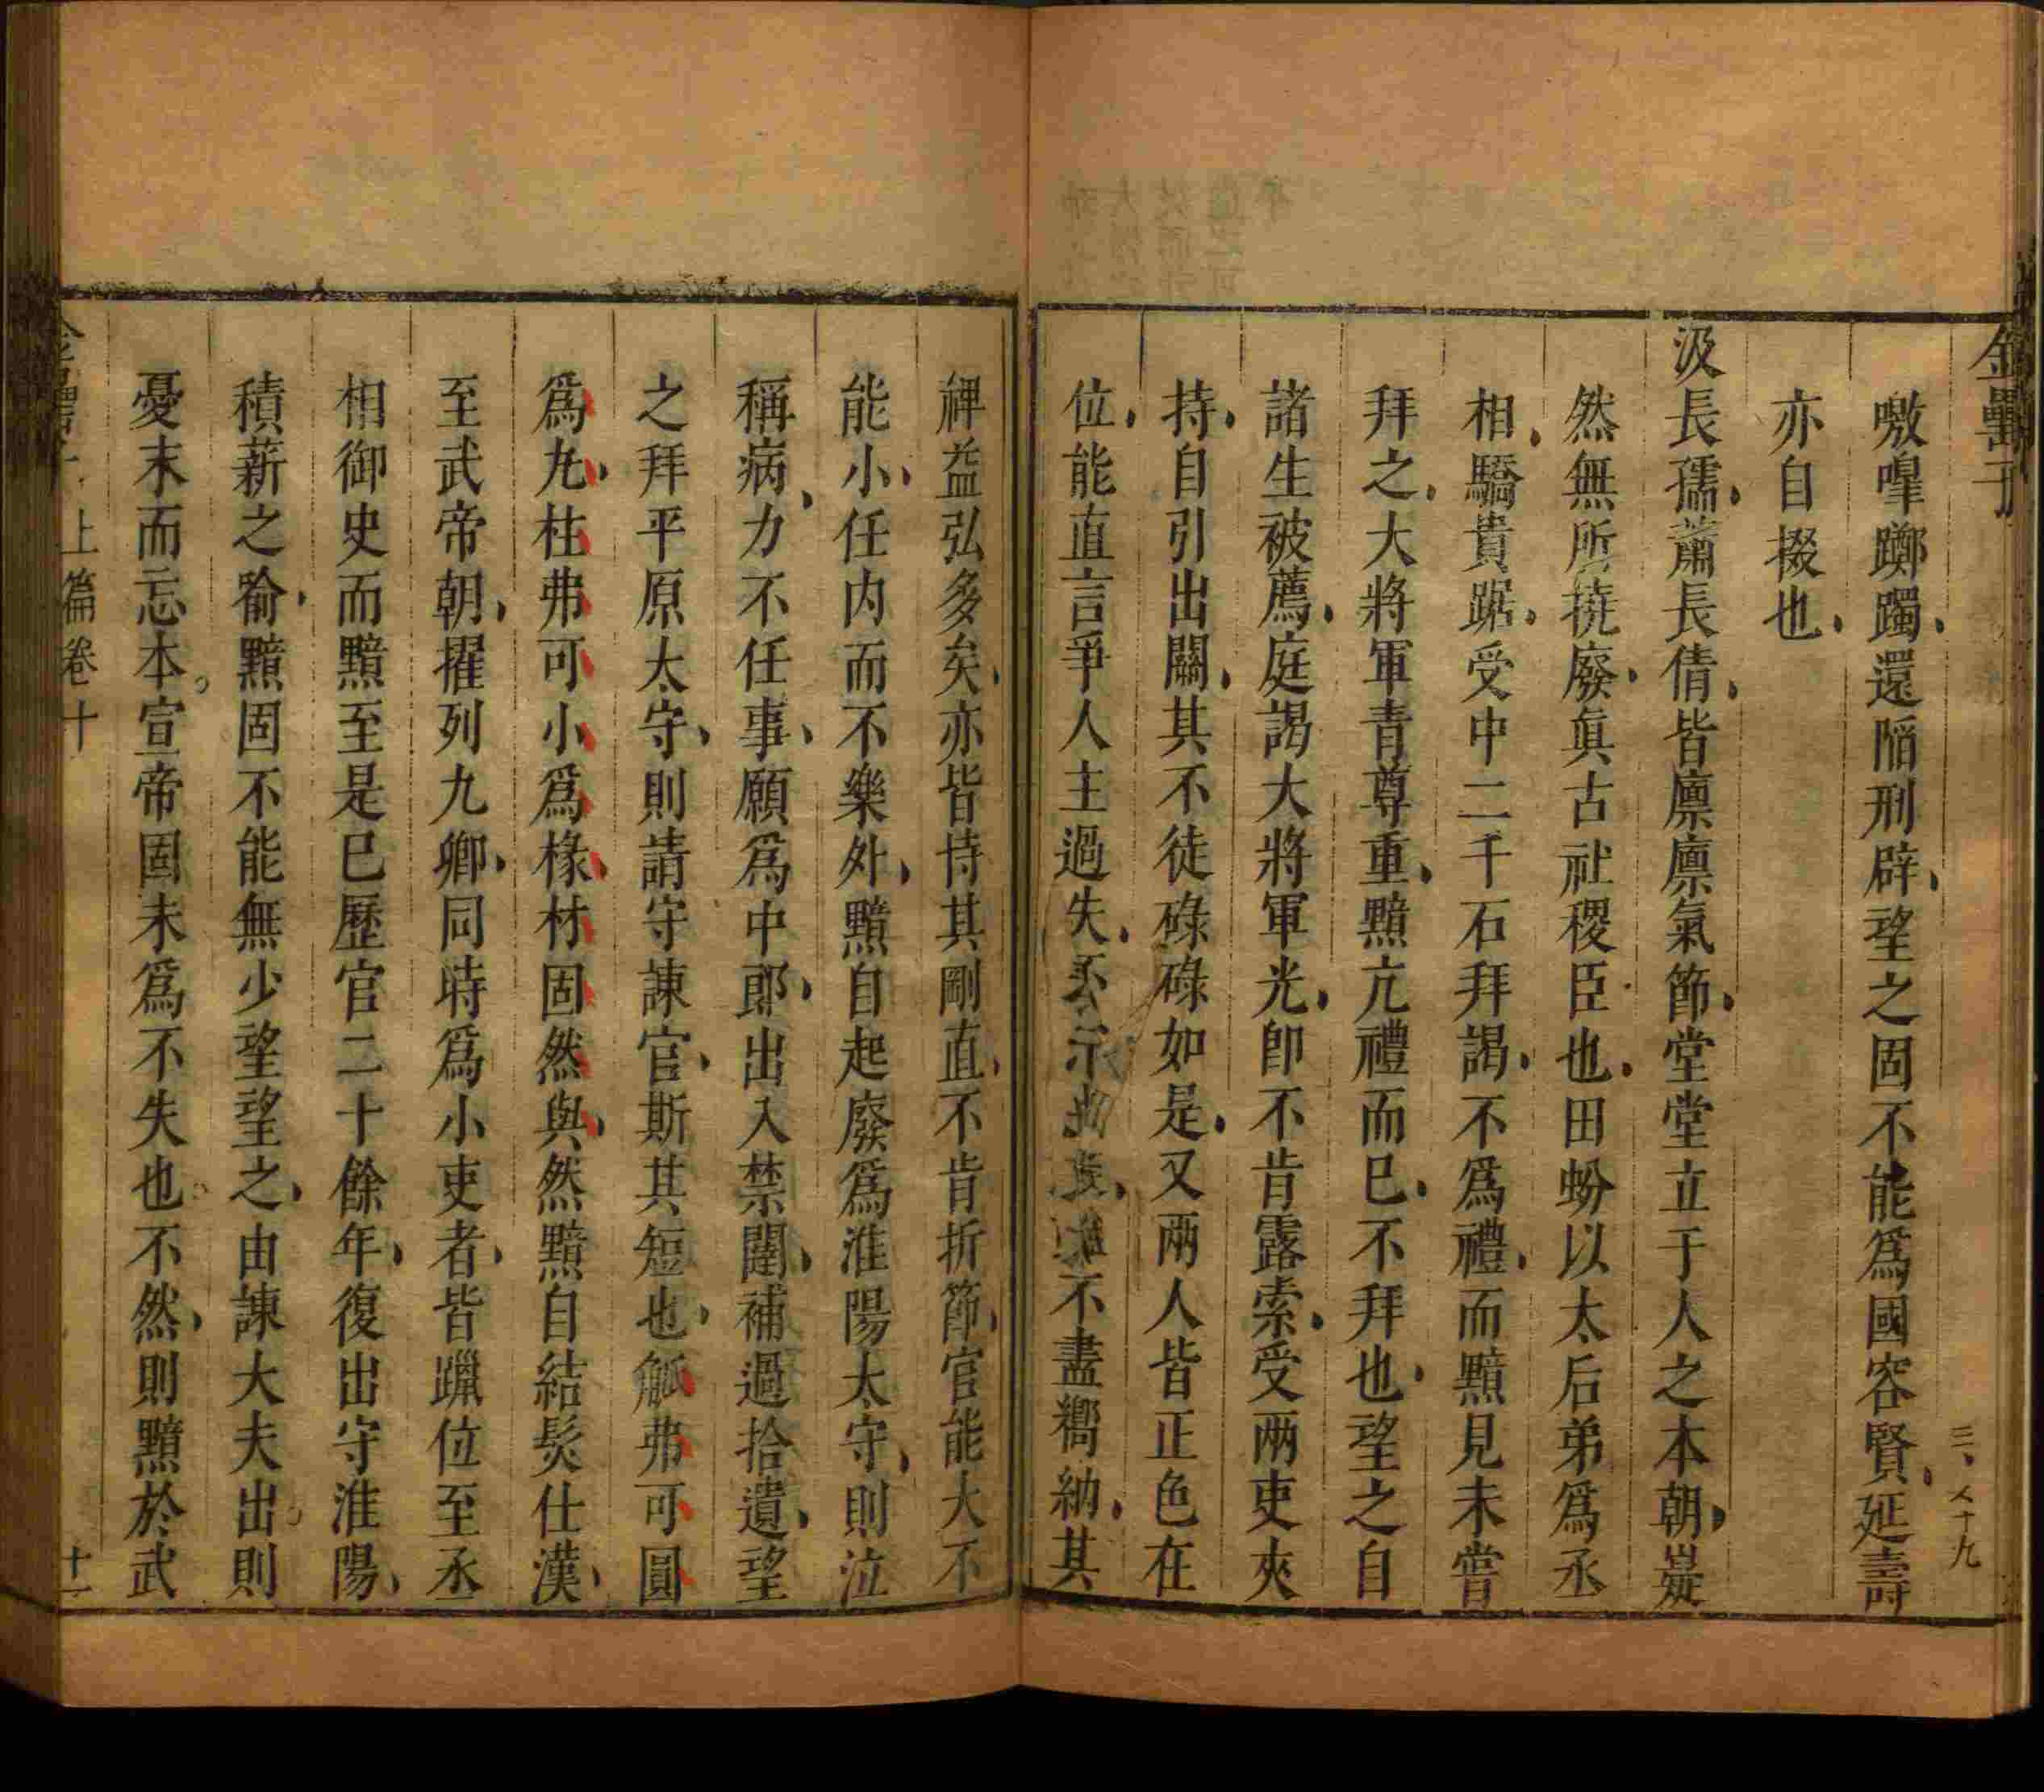 金罍子
三、八十九
噭嘷躑躅還陷刑辟望之固不能爲國容賢延壽
亦自掇也
汲長孺蕭長倩皆廩廩氣節堂堂立于人之本朝嶷
然無所撓廢眞古社稷臣也田蚡以太后弟爲丞
相驕貴踞受中二千石拜謁不爲禮而黯見未嘗
拜之大將軍青尊重黯亢禮而已不拜也望之自
諸生被薦庭謁大將軍光卽不肯露索受兩吏夾
持自引出關其不徒碌碌如是又兩人皆正色在
位能直言爭人主過失不盡嚮納其
裨益弘多矣亦皆恃其剛直不肯折節官能大不
能小任内而不樂外黯自起廢爲淮陽太守則泣
稱病力不任事願爲中郎出入禁闥補過拾遺望
之拜平原太守則請守諫官斯其短也觚弗可圓
爲九柱弗可小爲椽材固然與然黯自結髮仕漢
至武帝朝擢列九卿同時爲小吏者皆躐位至丞
相御史而黯至是已歷官二十餘年復出守淮陽
積薪之喻黯固不能無少望望之由諫大夫出則
憂末而忘本宣帝固未爲不失也不然則黯於武
上篇卷十
十一